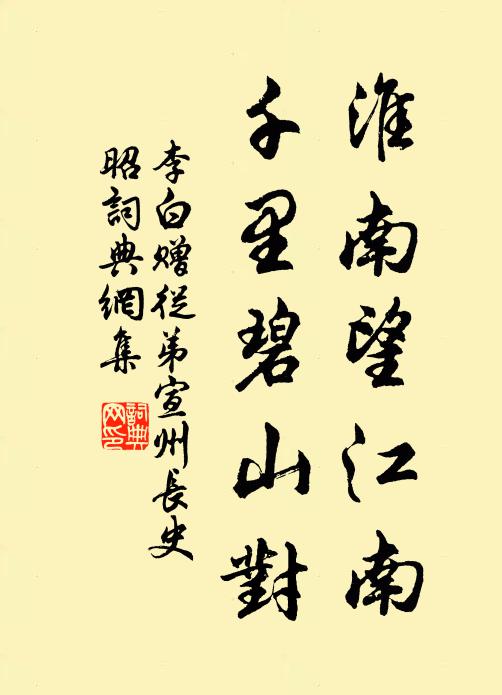 淮南望江南
千里碧山對
李白贈從弟宣州長史
昭詞典網集
詞典
网印